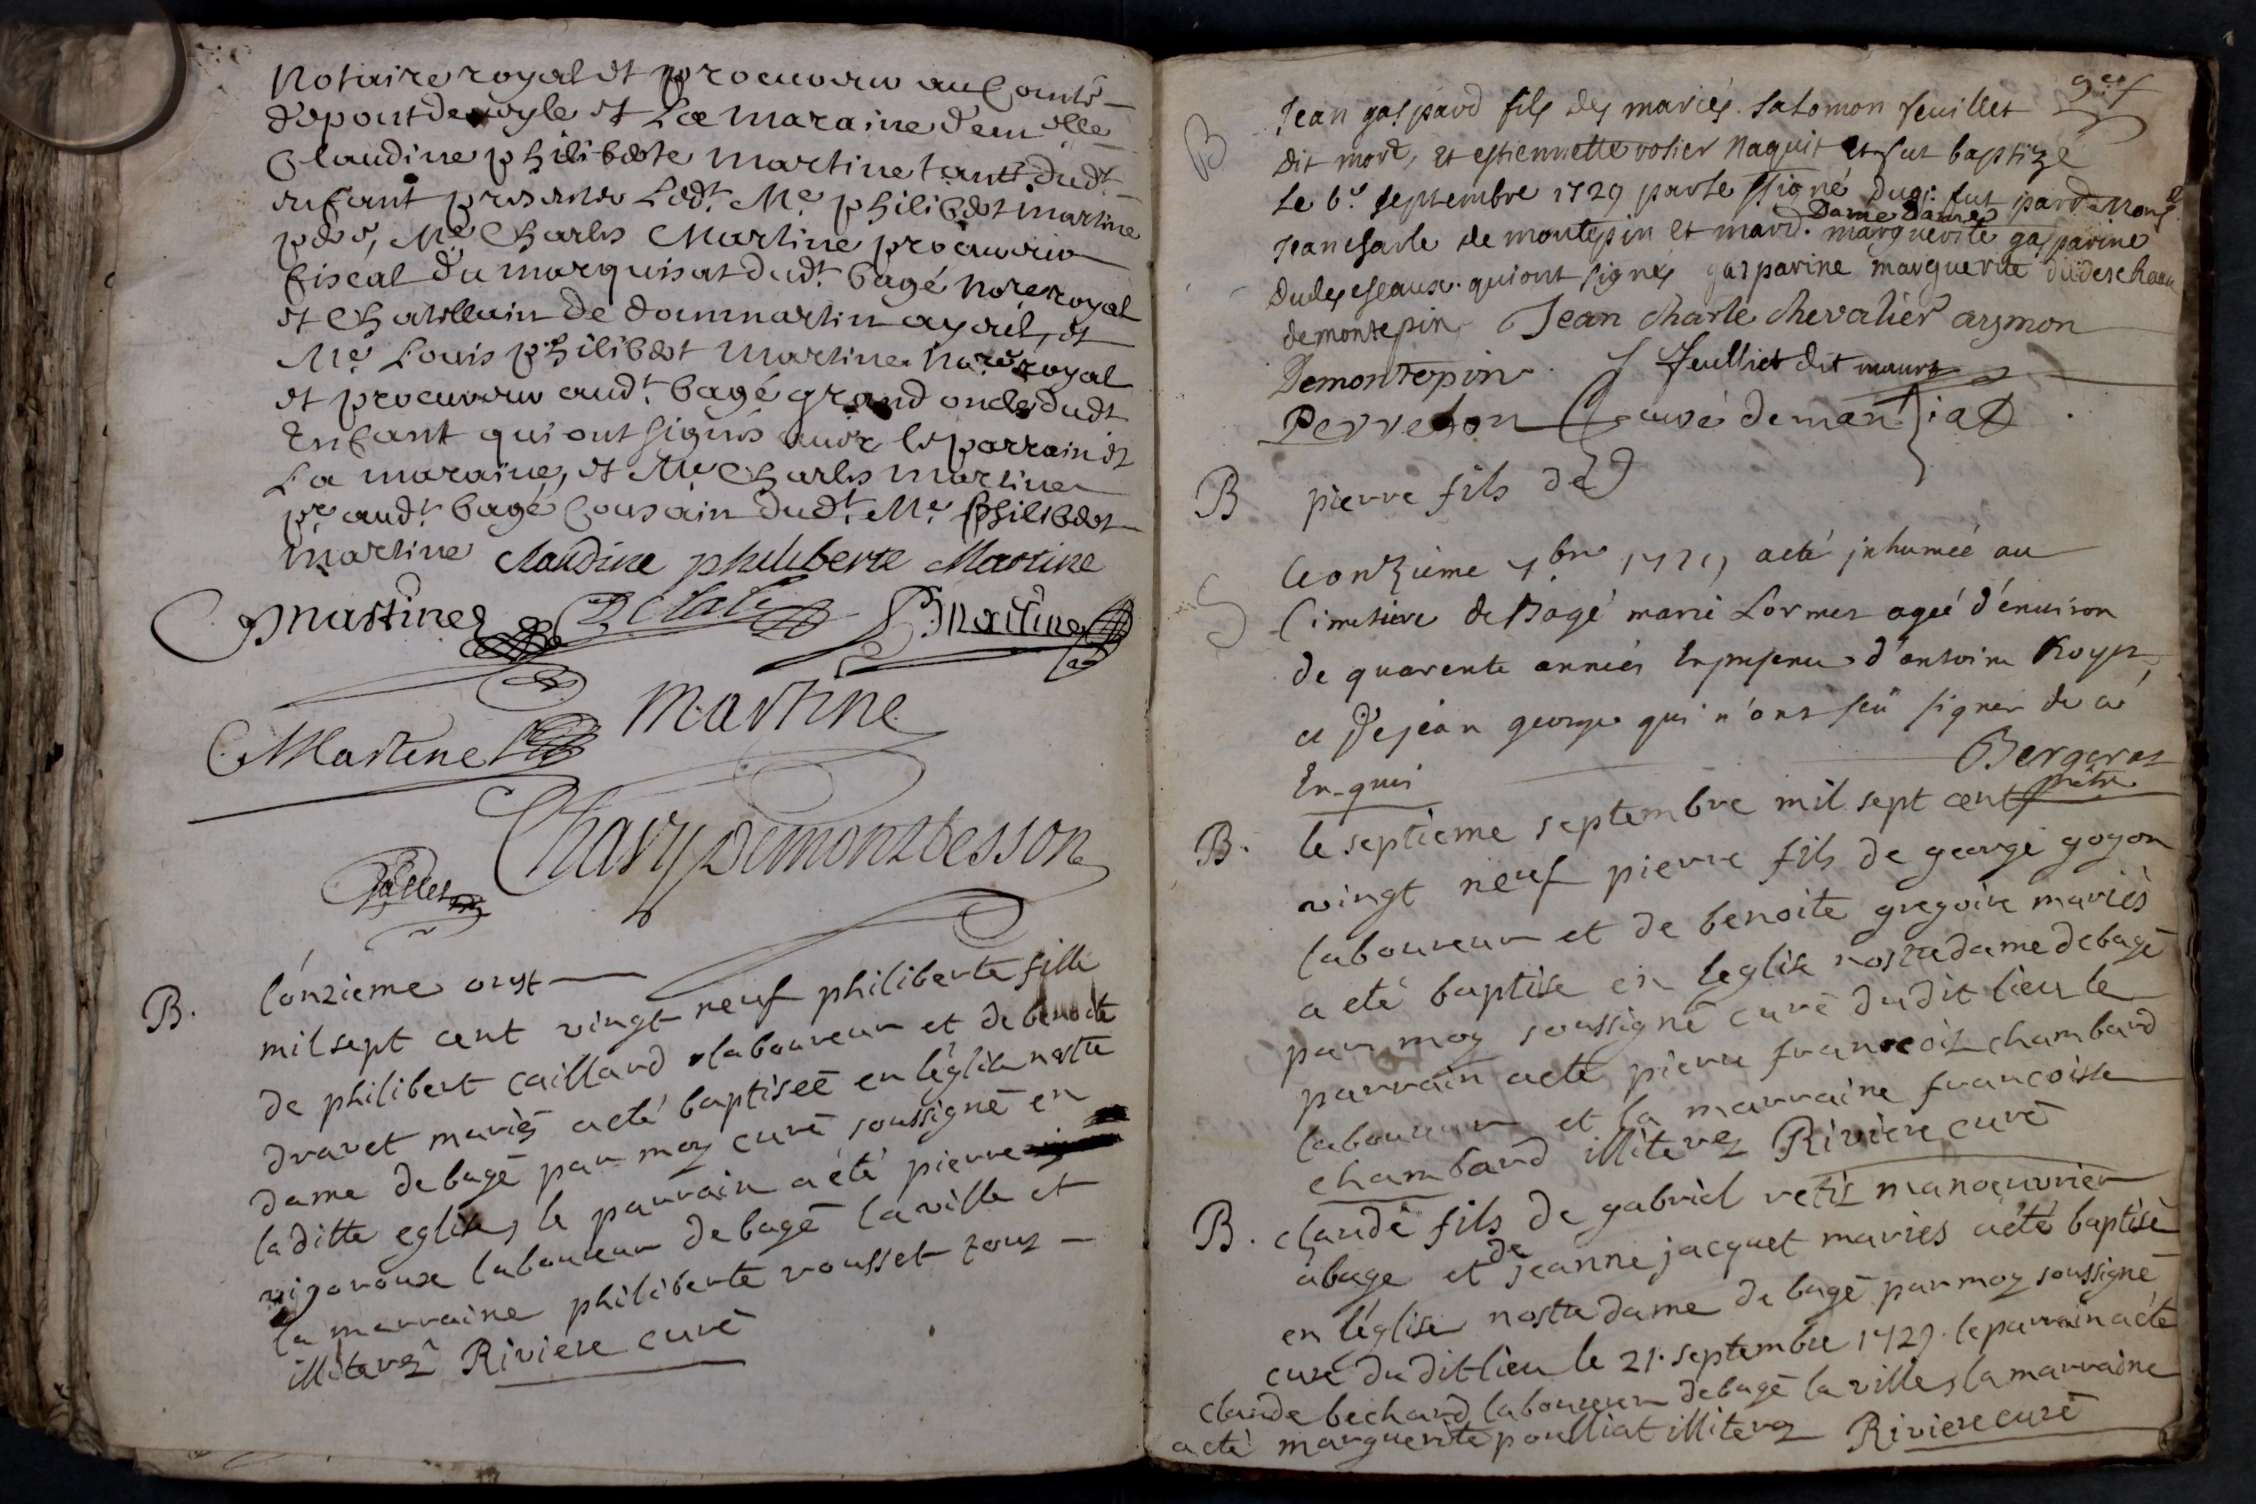 Notaire royal et procureur au Comté
de pont de veyle et La maraine dem.elle
Claudine philiberte martine tante dudt
enfant presents Ledt. Me philibert martine
pere, Me Charles Martine procureur
fiscal du marquisat dudt. bagé nore royal
et Chatellain de dommartin ayeul, et
Me Louis philibert martine nore royal
et procureur audt. bagé grand oncle dudt
Enfant qui ont signés avec le parrain et
La maraine, et Me Charles martine
pr. audt. bagé Cousain dudt. Me. philibert
martine claudine philiberte Martine
martine
Martine
C Martine martine
Chavy Demontbesson
B. l'onzieme oust
mil sept cent vingt neuf philiberte fille
de philibert caillard laboureur et de benoite
dravet mariés a eté baptiseé en l'église nostre
dame de bagé par moy curé soussigné en
laditte eglise, le parrain a été pierre
vigoroux laboureur de bagé la ville et
la marraine philiberte rousset tous
illiterez Riviere curé
B Jean gaspard fils des mariés Salomon feuillet
dit mort, et estiennette volier naquit et fut baptizé
Le 6.e septembre 1729 par le ssigné
Jean charle de montepin et mard. Dame marguerite gasparine
qui ont signés gasparine marguerite
demontepin Jean charle chevalier aymon
Demontepin J feulliet dit maure
Perreton Curé de manziat
B pierre fils de
S Le onzieme 7bre 1729 a eté inhumeé au
Cimetiere de Bagé marie Lormer ageé d'environ
de quarente anneés En presence d'antoine Royer
et De jean george qui n'ont sçü signer de cé
Enquis Bergeret
prêtre
B. le septieme septembre mil sept cent
vingt neuf pierre fils de george goyon
laboureur et de benoite gregoire mariés
a eté baptise en l'eglise nostre dame de bagé
par moy soussigné curé dudit lieu le
parrain a eté pierre francois chambard
laboureur et la marraine francoise
chambard illiterez Riviere curé
B. claude fils de gabriel retis manoeuvrier
a bage et de jeanne jacquet maries a eté baptisé
en l'église nostre dame de bagé par moy soussigné
curé du dit lieu le 21. septembre 1729. le parrain a eté
claude bechard laboureur de bagé la ville, la marraine
a eté marguerite poulliat illiterez Riviere curé